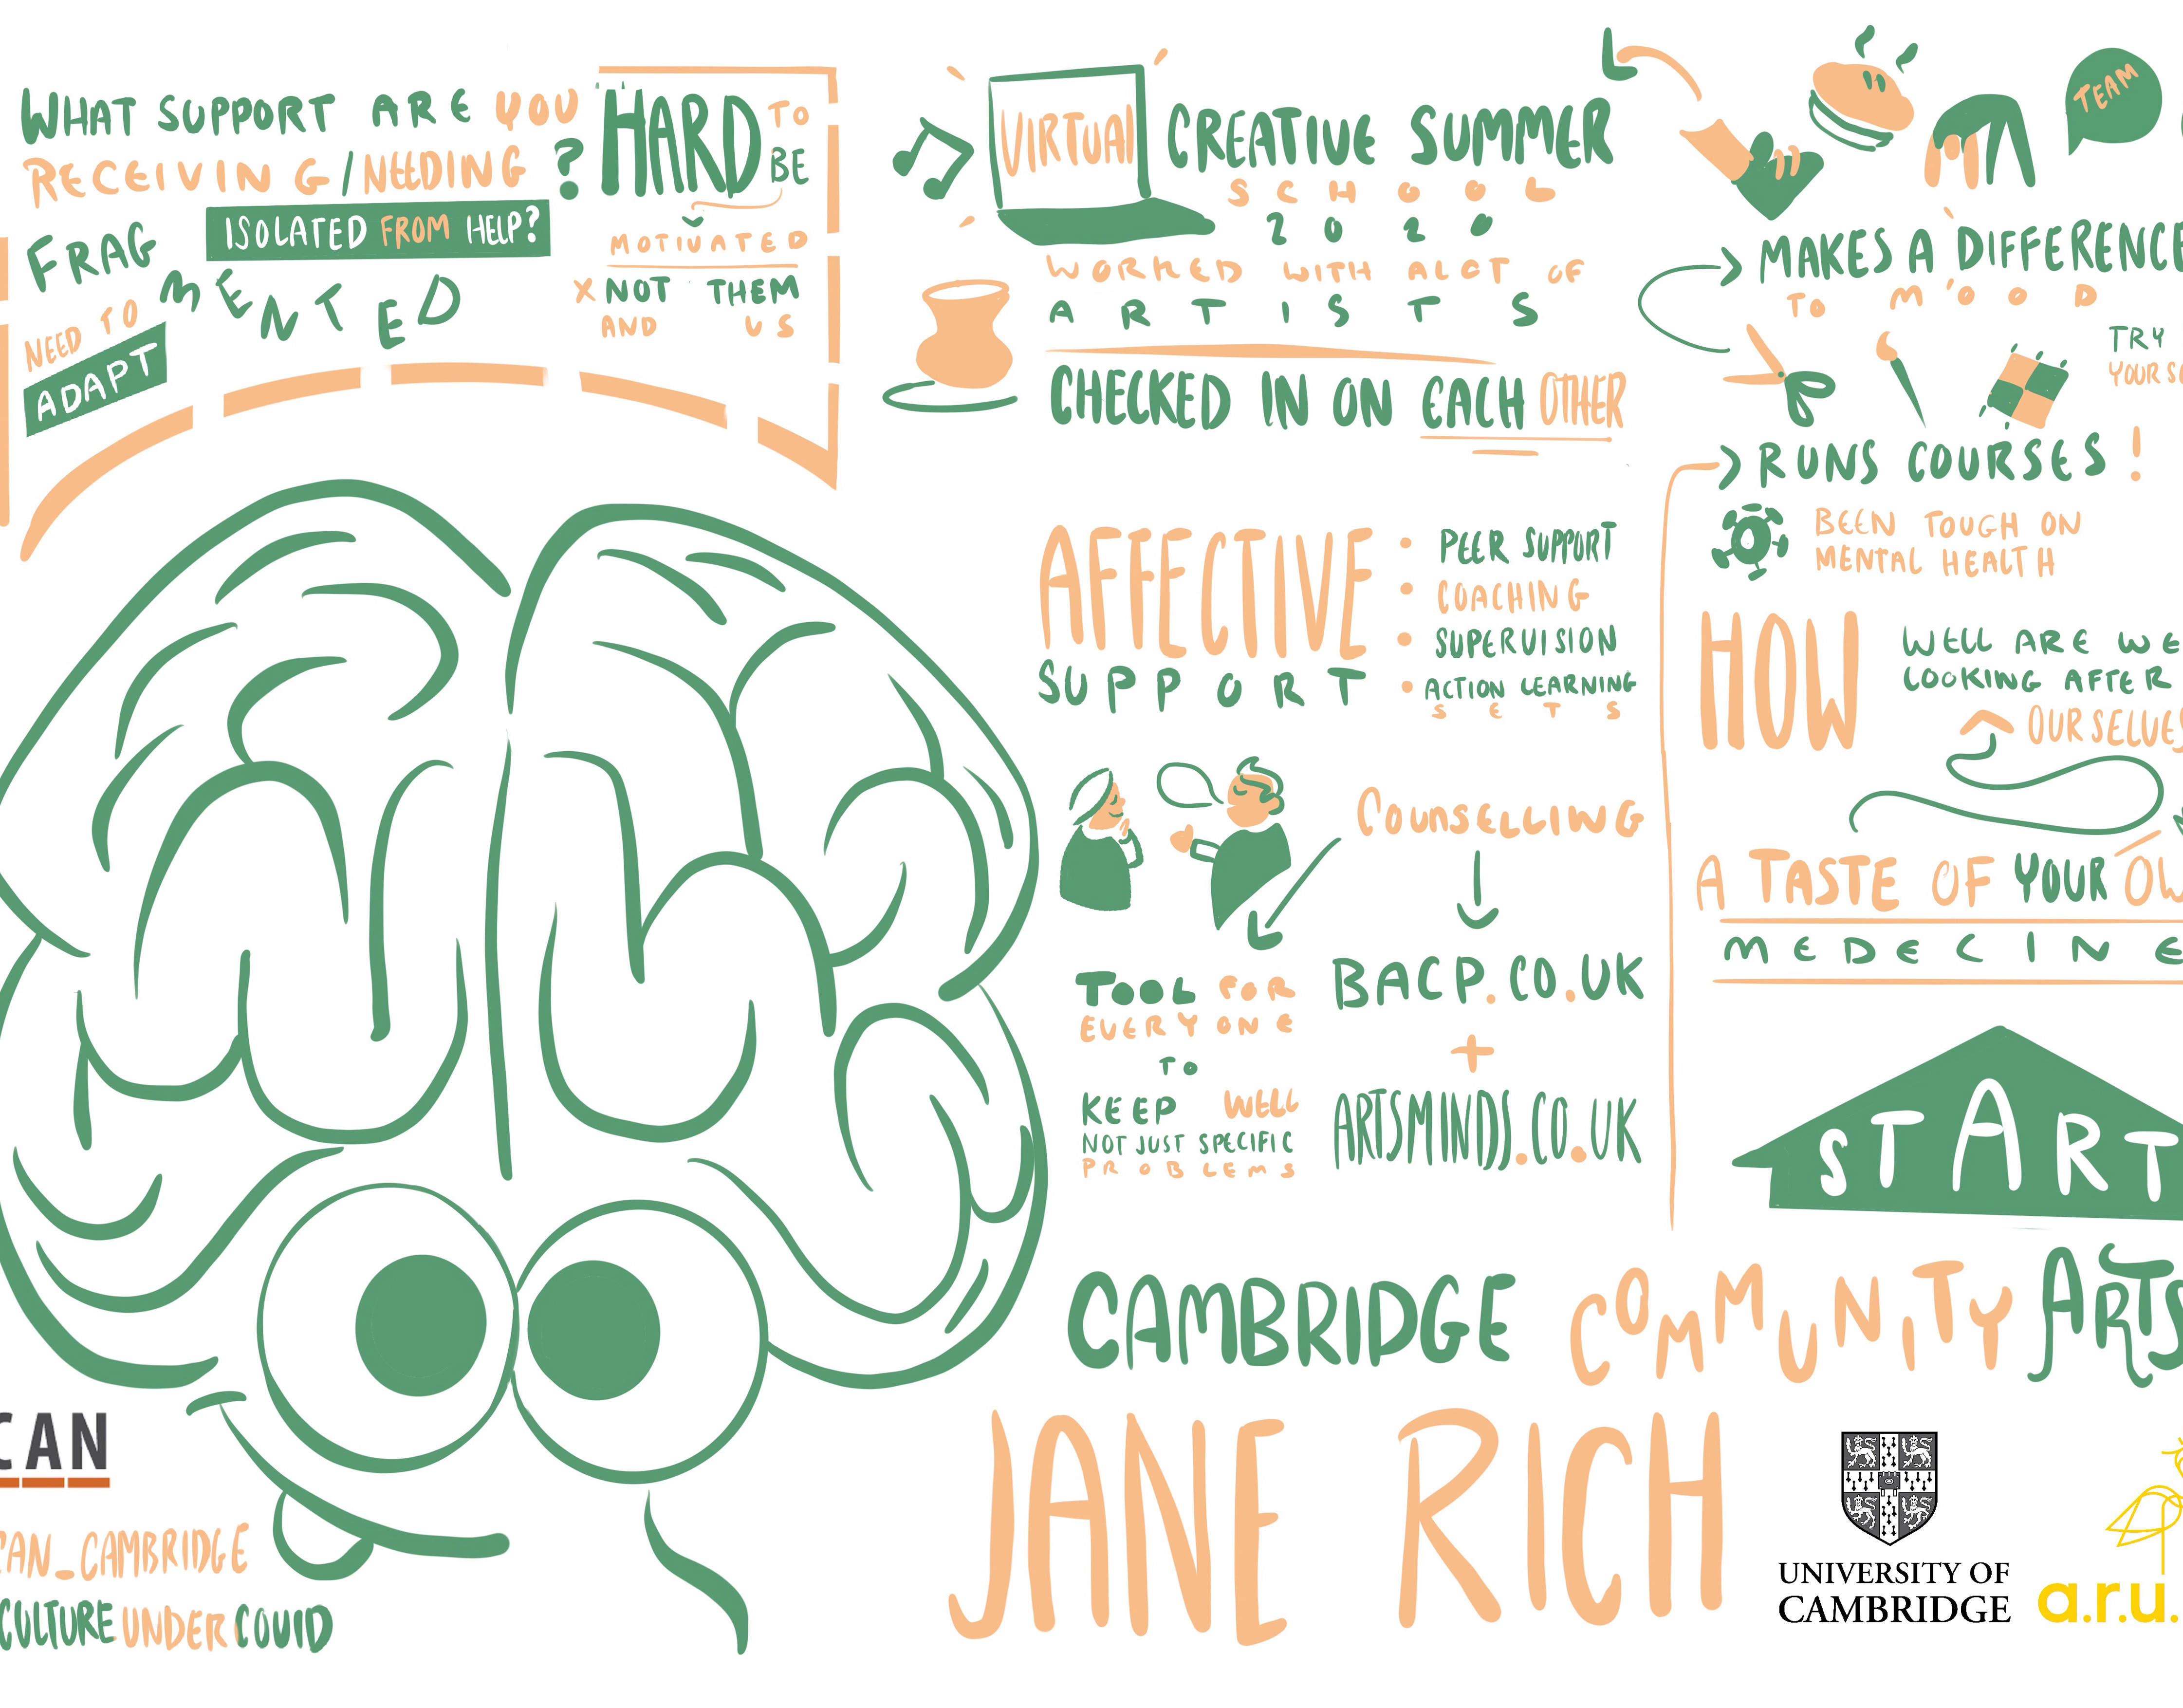 WHAT SUPPORT ARE YOU
RECEIVING/NEEDING ?
ISOLATED FROM HELP?
FRAGMENTED
NEED TO
ADAPT
HARD TO
BE
MOTIVATED
X NOT THEM
AND US
VIRTUAL CREATIVE SUMMER
SCHOOL
2020
WORKED WITH ALOT OF
ARTISTS
CHECKED IN ON EACH OTHER
TEAM
MAKES A DIFFERENCE
TO MOOD
TRY
RUNS COURSES!
BEEN TOUGH ON
MENTAL HEALTH
HOW WELL ARE WE
LOOKING AFTER
OURSELVES
A TASTE OF YOUR OW
MEDECINE
START
AFFECTIVE
SUPPORT
• PEER SUPPORT
• COACHING
• SUPERVISION
• ACTION LEARNING
SETS
COUNSELLING
BACP.CO.UK
+
ARTSMINDS.CO.UK
TOOL FOR
EVERYONE
TO
KEEP WELL
NOT JUST SPECIFIC
PROBLEMS
CAMBRIDGE COMMUNITY ARTS
JANE RICH
CAN
CAN_CAMBRIDGE
CULTURE UNDER COVID
UNIVERSITY OF
CAMBRIDGE
a.r.u.